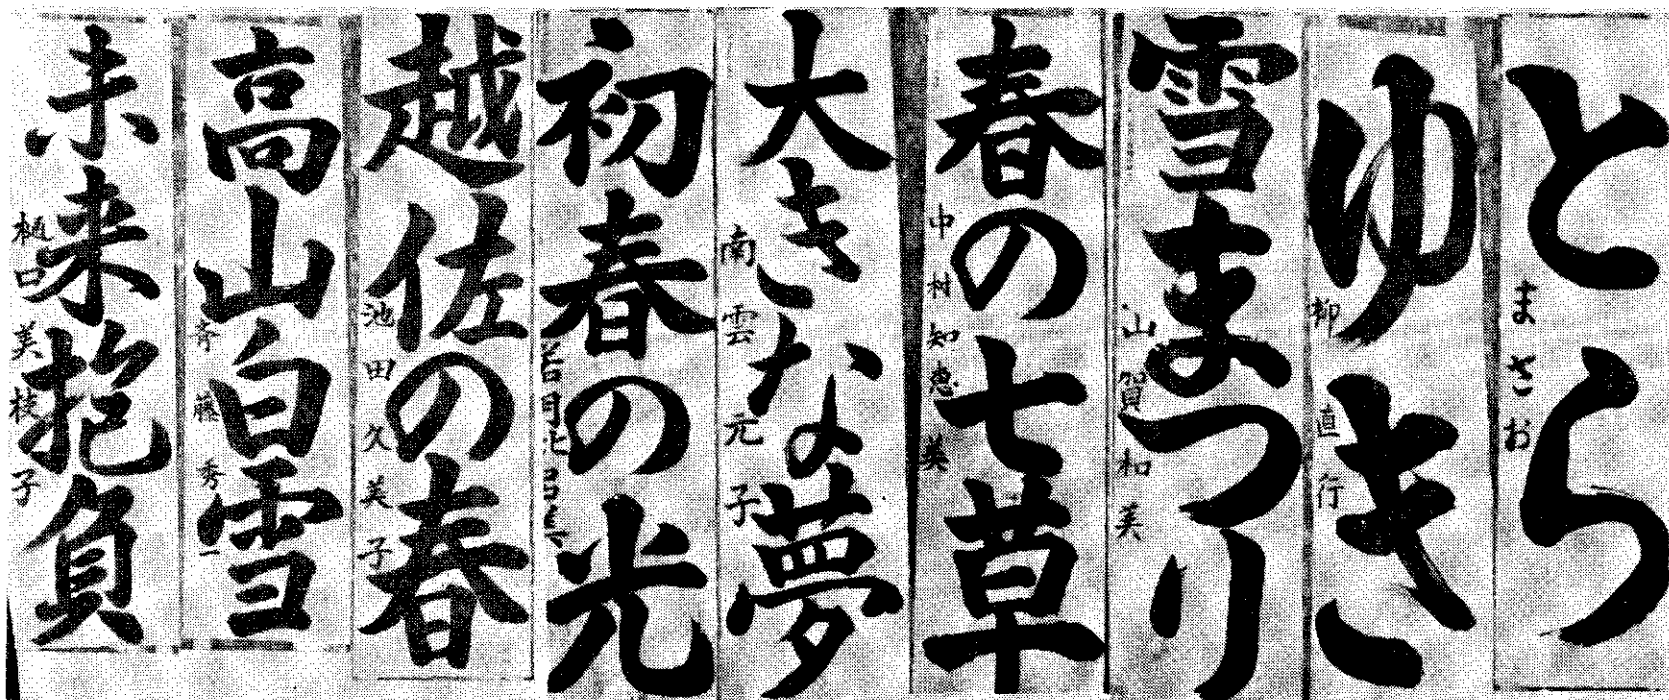 とら
まさお
ゆき
柳直行
雪まつり
山賀和美
春の七草
中村知恵美
大きな夢
南雲元子
初春の光
越佐の春
池田久美子
高山白雪
斉藤秀一
未来抱負
樋口美枝子